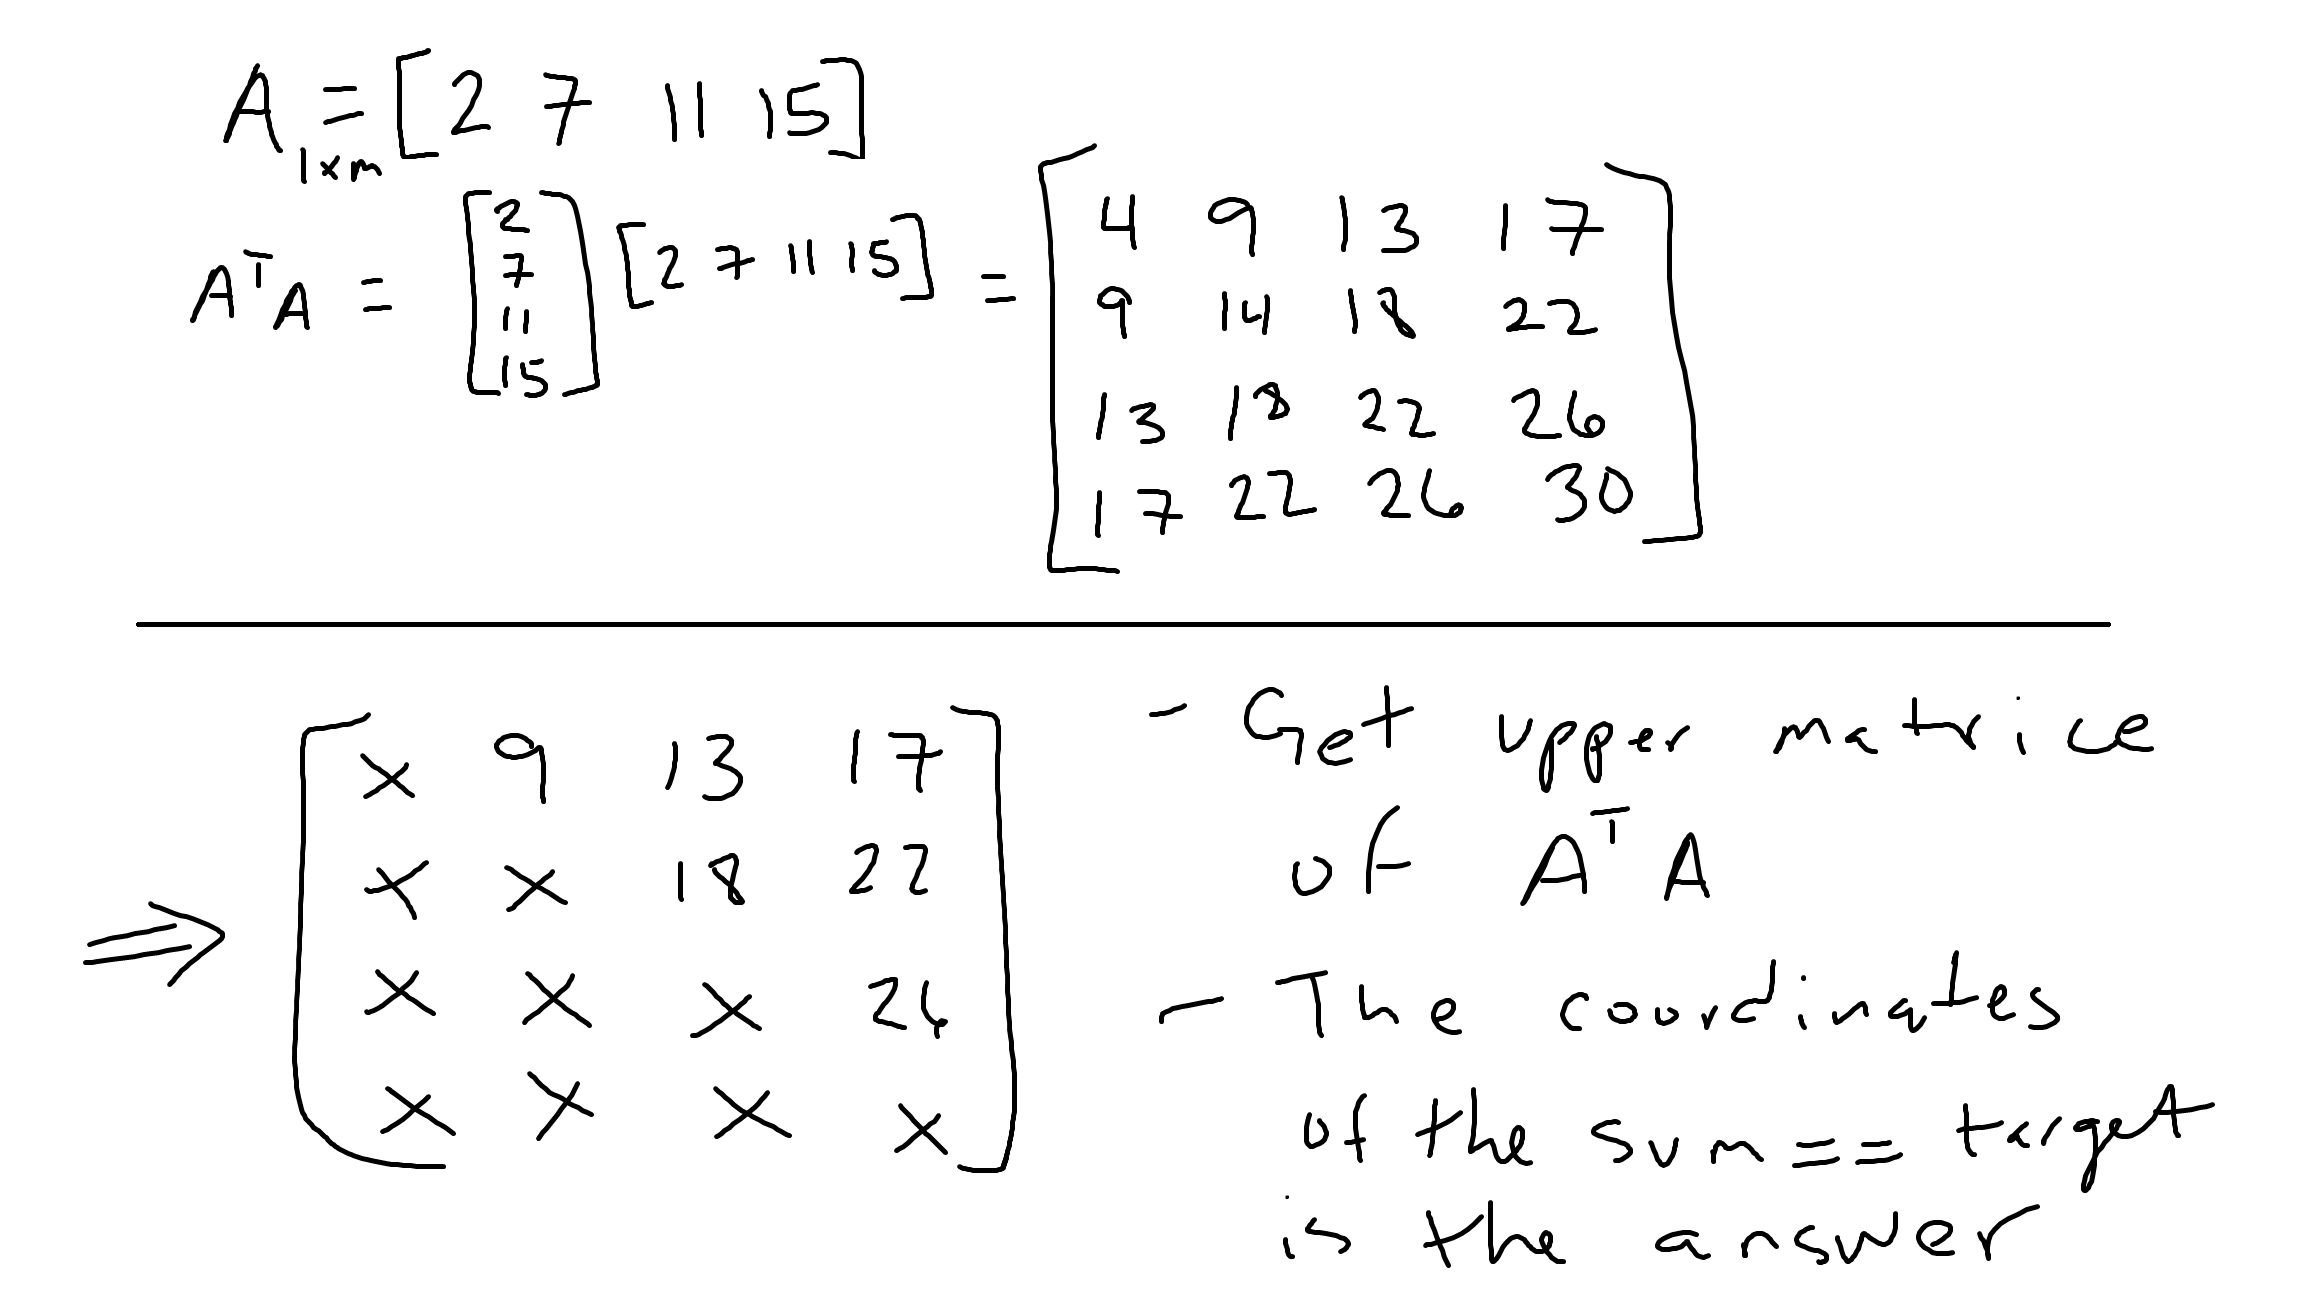 A₁ₓₘ = [2 7 11 15]
AᵀA = [2 7 11 15] [2 7 11 15] = [4 9 13 17
9 14 18 22
13 18 22 26
17 22 26 30]
⇒ [x 9 13 17
x x 18 22
x x x 26
x x x x]
- Get upper matrice
of AᵀA
- The coordinates
of the sum == target
is the answer